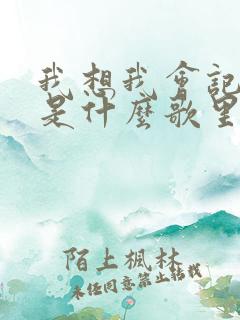 我想我會記
是什麼歌里
陌上楓林
未经同意禁止转载